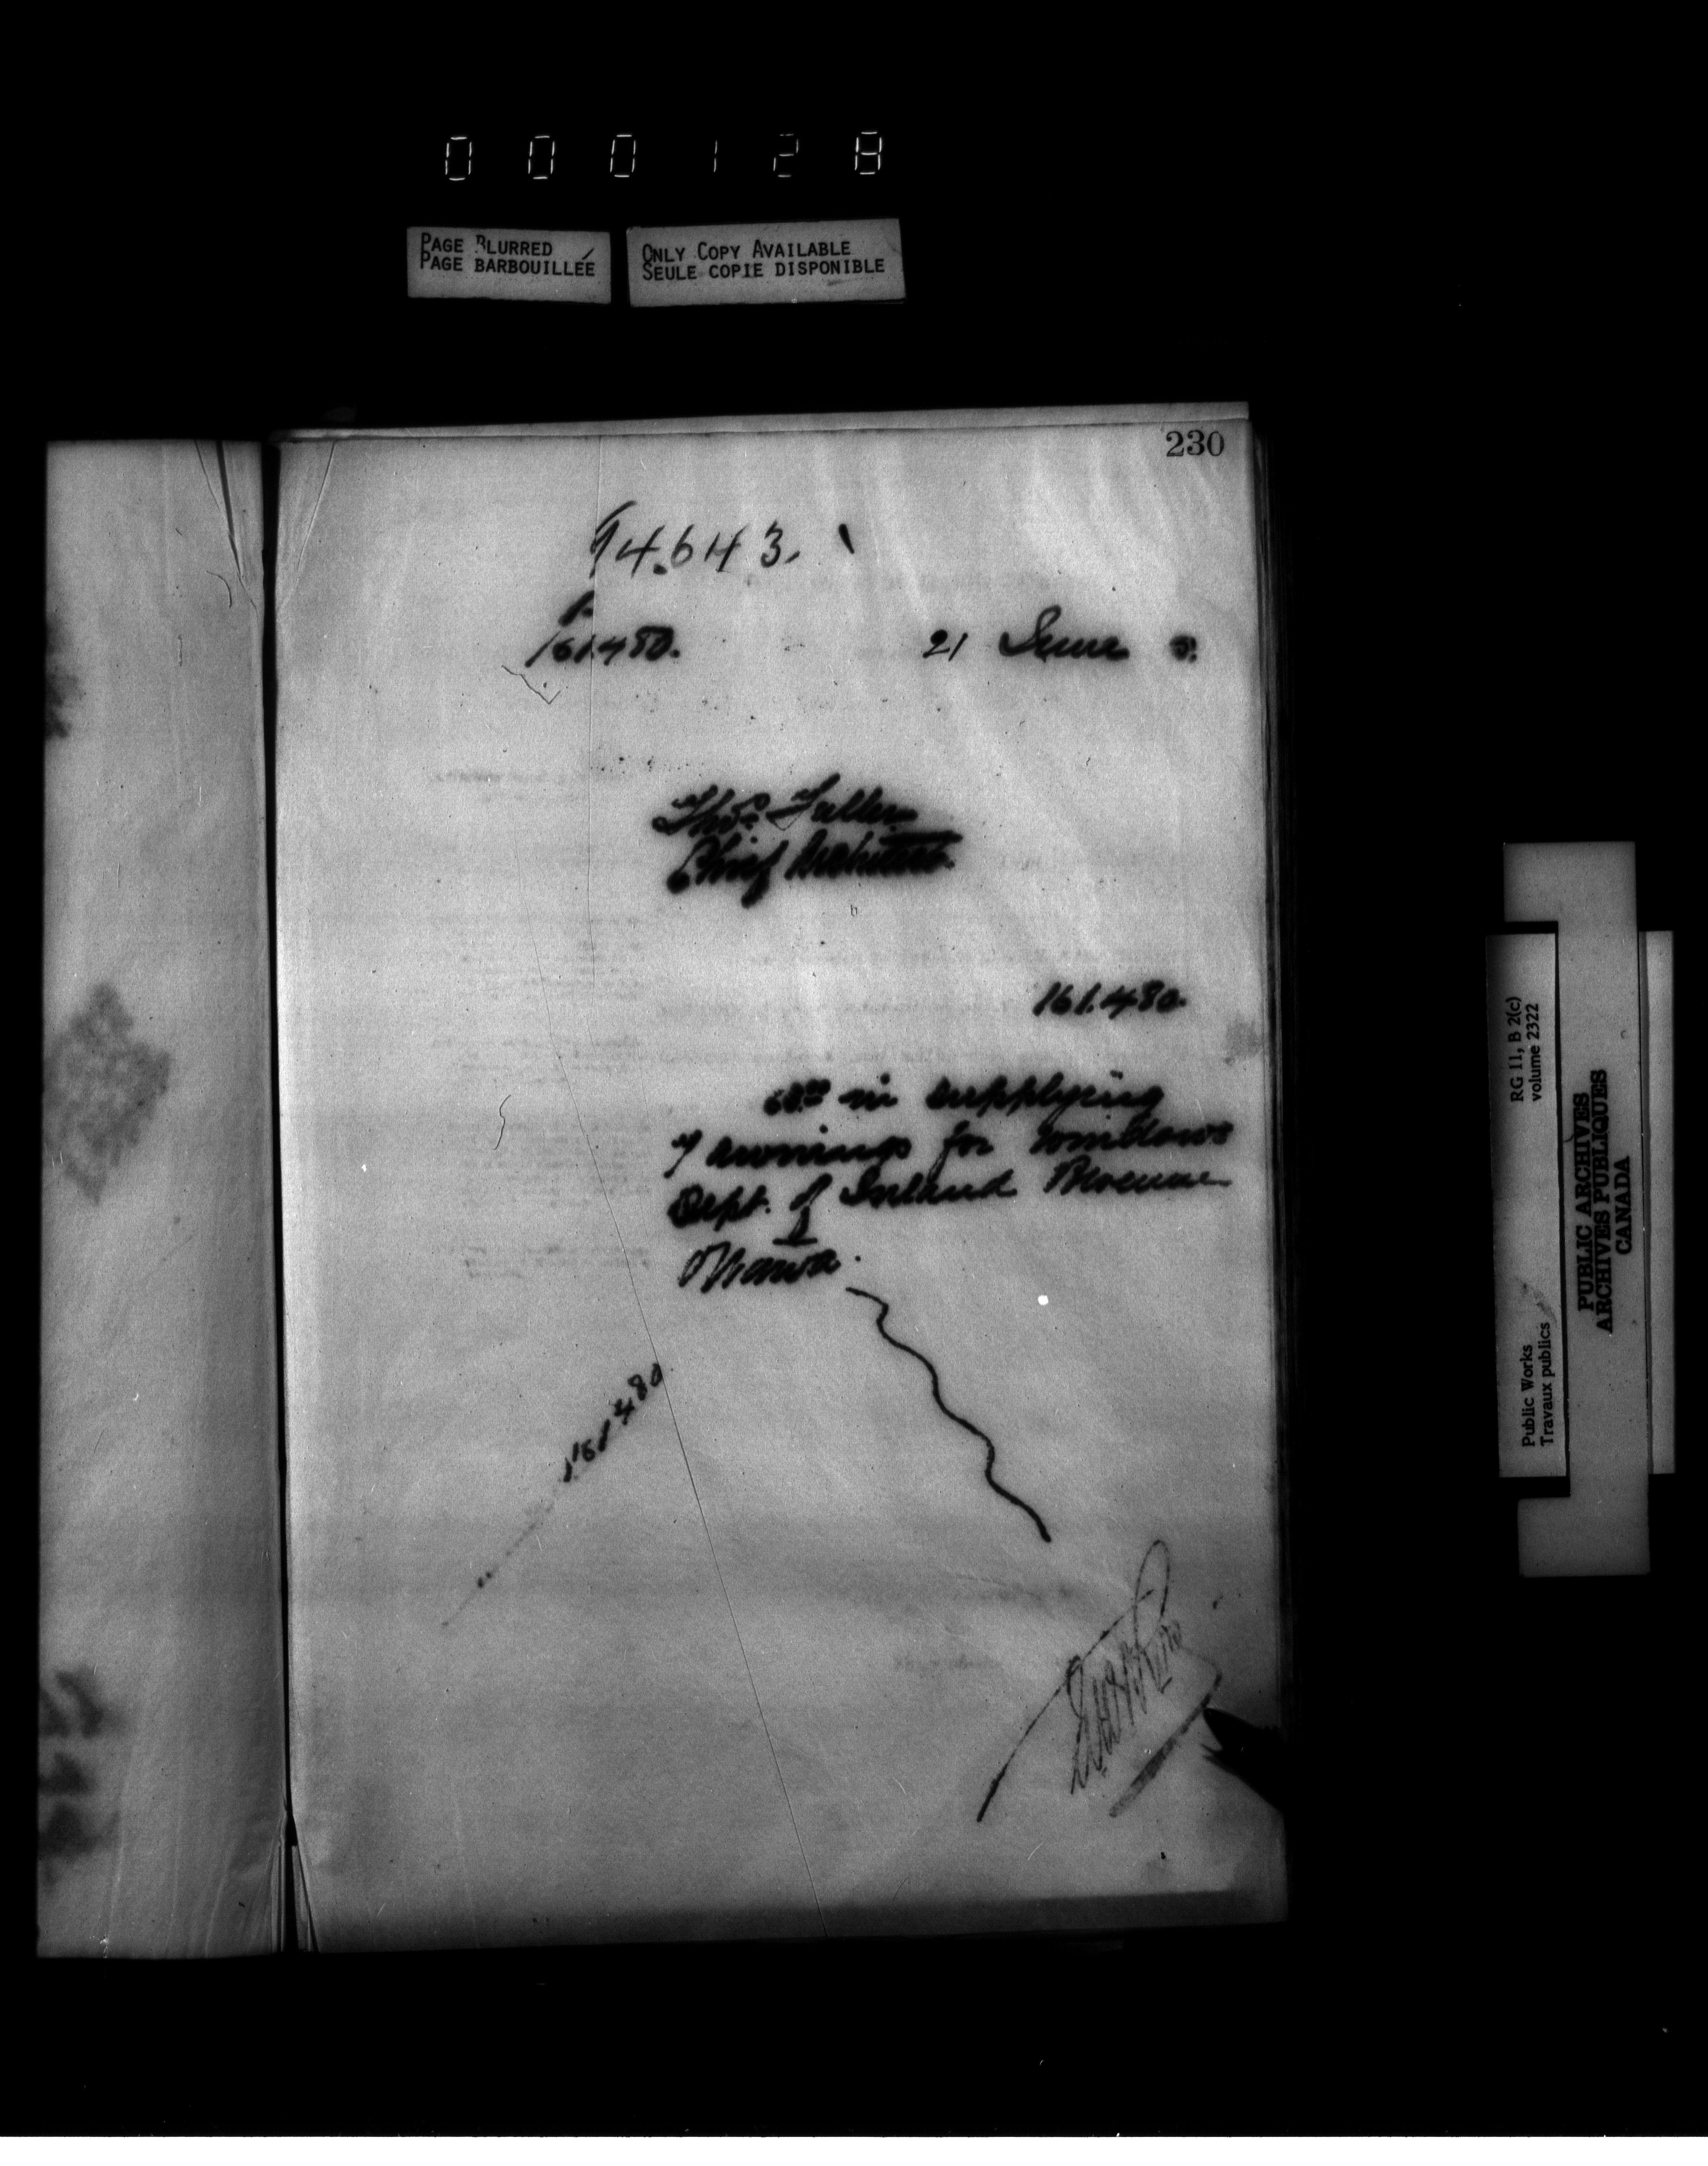 000128
PAGE BLURRED
PAGE BARBOUILLÉE
ONLY COPY AVAILABLE
SEULE COPIE DISPONIBLE
230
94.643.
161.480.
21 June
Thos. Fuller
Chief Architect.
161.480.
in supplying
7 awnings for windows
Dept. of Inland Revenue
Ottawa.
161480
RG 11, B 2(c)
volume 2322
Public Works
Travaux publics
PUBLIC ARCHIVES
ARCHIVES PUBLIQUES
CANADA